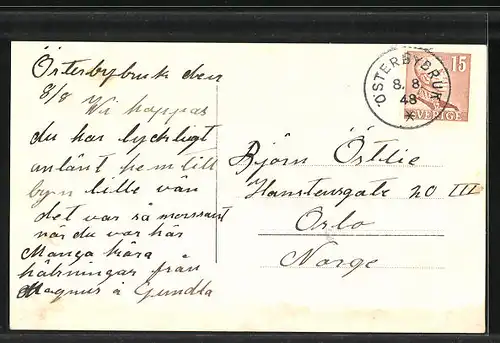 Österbybruk den
8/8 Vi hoppas
du har lyckligt
anlänt hem till
byn lille vän
det var så morssant
när du var här
Många kära
hälsningar från
Magnus å Gundla
ÖSTERBYBRUK
8. 8.
48
15
SVERIGE
Björn Östlie
20 III
Oslo
Norge